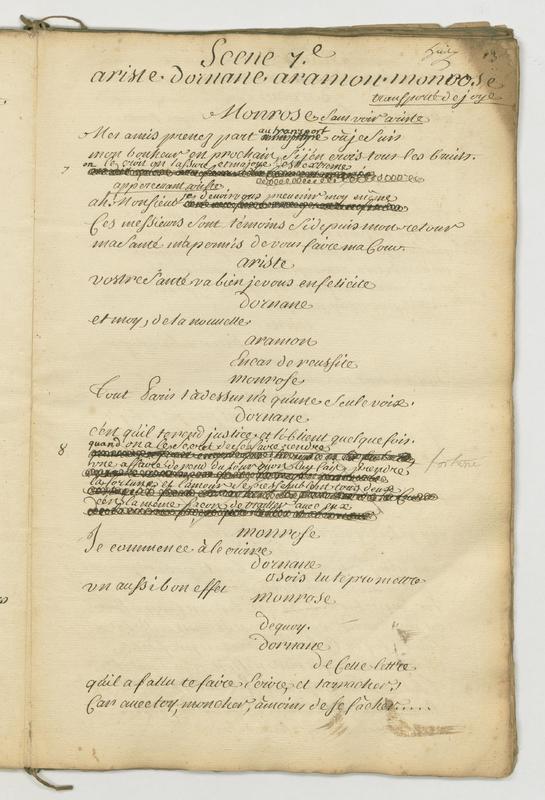 Scene 7.e
13
ariste. dornane. aramon. monrose
transporté de joye
Monrose sans voir ariste
Mes amis prenés part au transport ou je suis
mon bonheur est prochain, si j'en crois tous les bruits.
7 on le croit on l'assure, et ma joye est extreme
appercevant ariste
ah. Monsieur je devois vous prevenir moy même
Ces messieurs sont temoins si depuis mon retour
ma santé m'a permis de vous faire ma Cour.
ariste
vostre Santé va bien je vous en felicite
dornane
et moy, de ta nouvelle
aramon
En cas de reussite
monrose
Tout Paris la dessus n'a qu'une seule voix.
dornane
c'est qu'il te rend justice, et l'obtient quelque fois.
8 quand on a le secret de se faire
une affaire
fortune
la fortune et l'amour
c'est la même façon de traitter avec eux
monrose
Je commence à le croire
dornane
osois tu te promettre
un aussi bon effet
monrose
dequoy.
dornane
de Cette lettre
qu'il a fallu te faire Ecrire, et t'arracher?
Car avec toy, mon cher, à moins de se fâcher.....